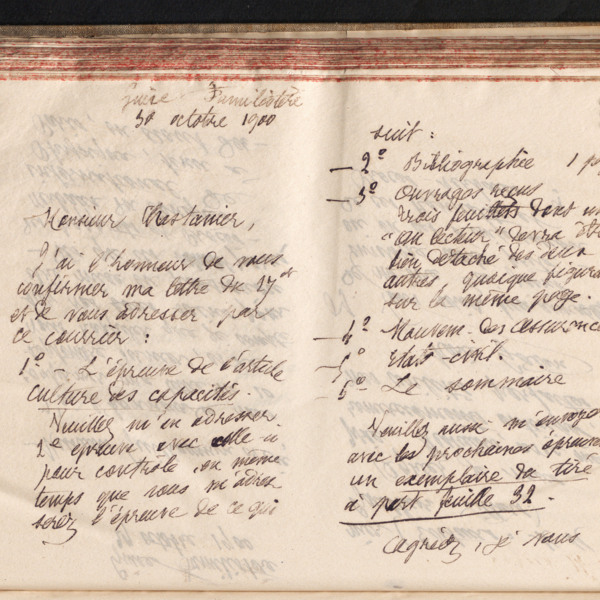 Guise Familistère
30 octobre 1900
Monsieur Chastanier,
J'ai l'honneur de vous
confirmer ma lettre du 17 ct
et de vous adresser par
ce courrier :
1º - L'épreuve de l'article
culture des capacités.
Veuillez m'en adresser
2e épreuve avec celle-ci
pour contrôle, en même
temps que vous m'adres
serez l'épreuve de ce qui
suit :
- 2º Bibliographie 1 pa
- 3º Ouvrages reçus
trois feuillets dont un
"au lecteur" devra être
bien détaché des deux
autres, quoique figura
sur la même page.
- 4º Mouvem. des assurance
- 5º Etat-civil.
6º Le sommaire
Veuillez aussi m'envoye
avec les prochaines épreuve
un exemplaire du tiré
à part feuille 32.
Agréez, je vous